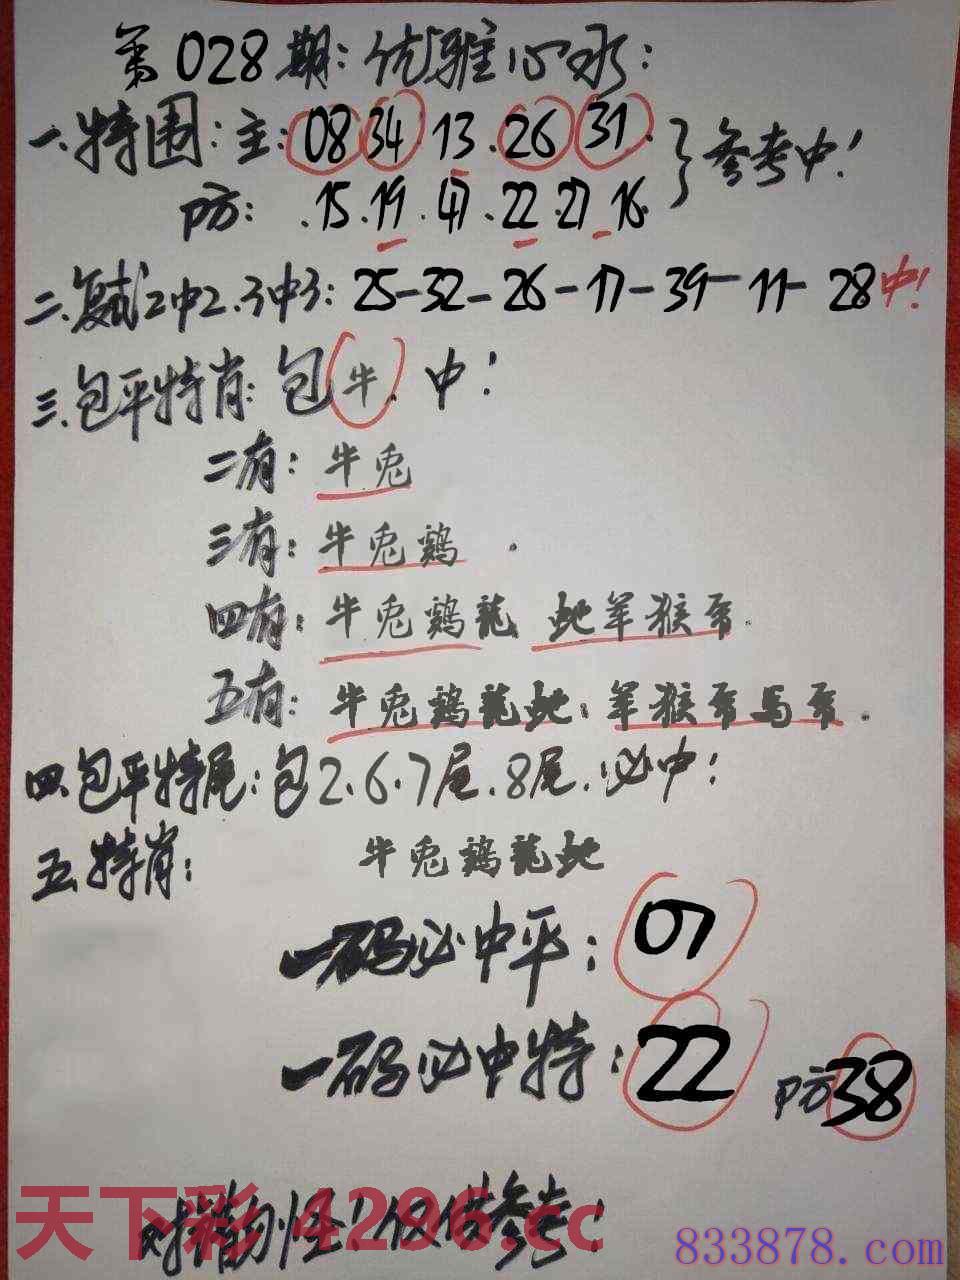 第028期:优雅心水:
一.特围:主:08 34.13.26 31.}参考中!
防:.15.19.47.22.27.16.
二.复式2中2.3中3:25-32-26-17-39-11-28中!
三.包平特肖:包牛.中!
二有:牛兔
三有:牛兔鷄.
四有:牛兔鷄龍 蛇羊猴
五有:牛兔鷄龍蛇.羊猴 馬
四.包平特尾:包2.6.7尾.8尾.必中!
五.特肖:牛兔鷄龍蛇
一码必中平:07
一码必中特:22 防38
仅供参考!
天下彩 4296.cc
833878.com